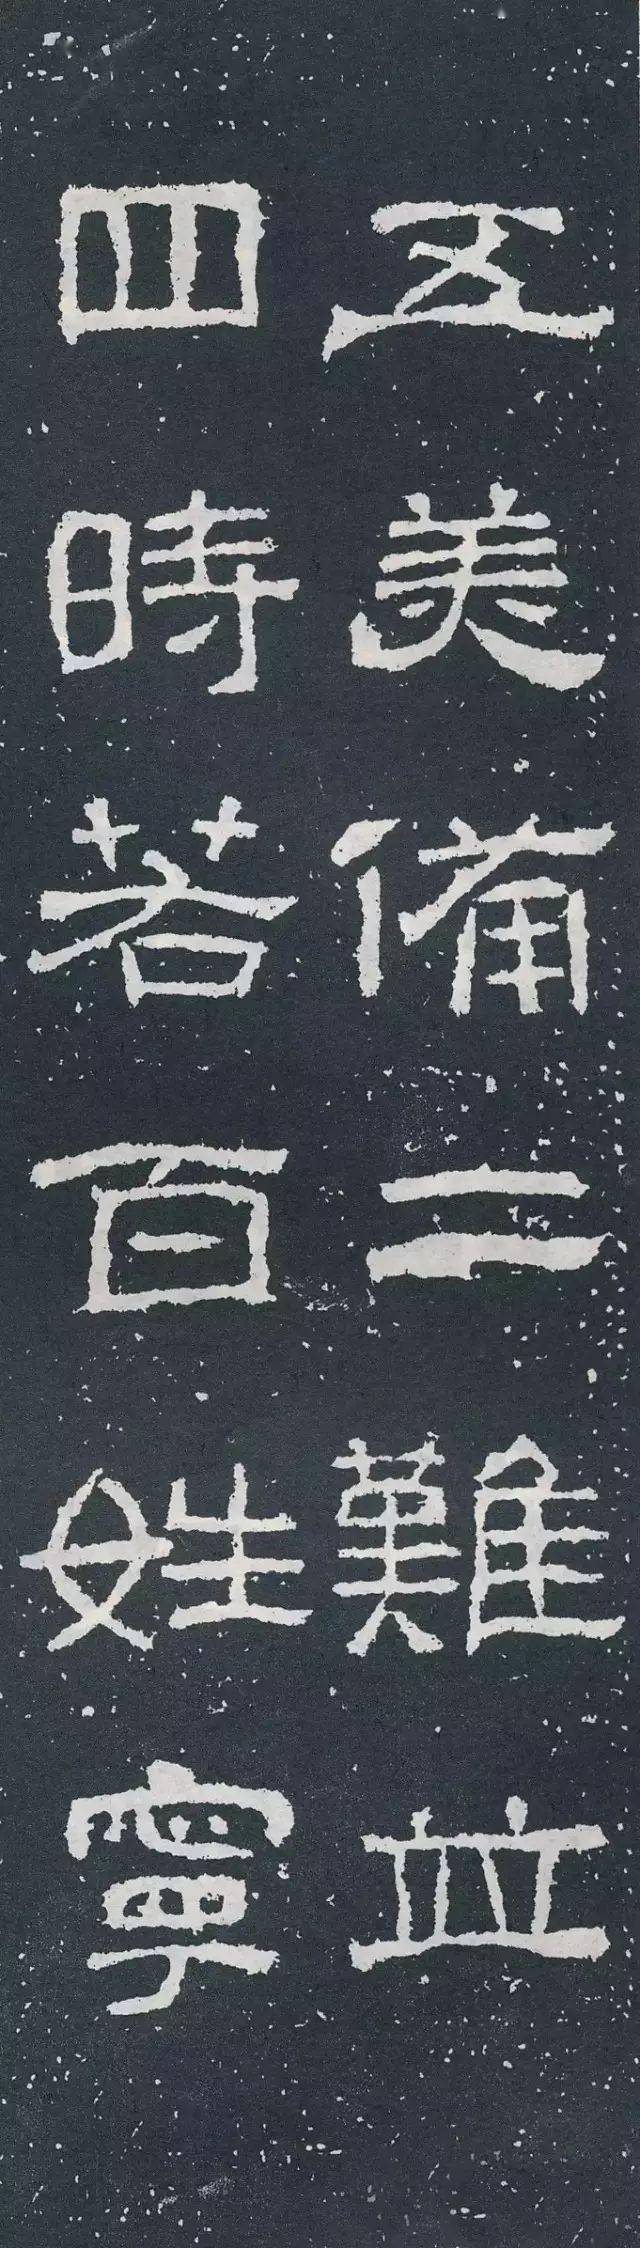 五美備二難並
四時若百姓寧